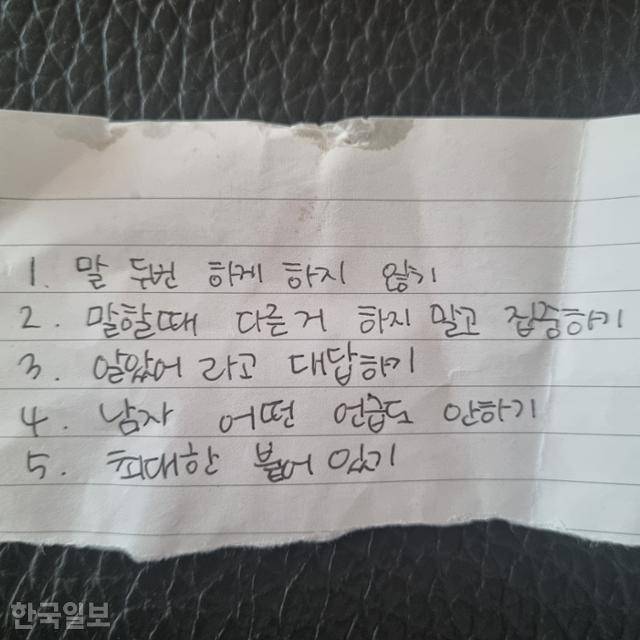 1. 말 두번 하게 하지 않기
2. 말할때 다른거 하지 말고 집중하기
3. 알았어 라고 대답하기
4. 남자 어떤 언급도 안하기
5. 최대한 붙어 있기
한국일보